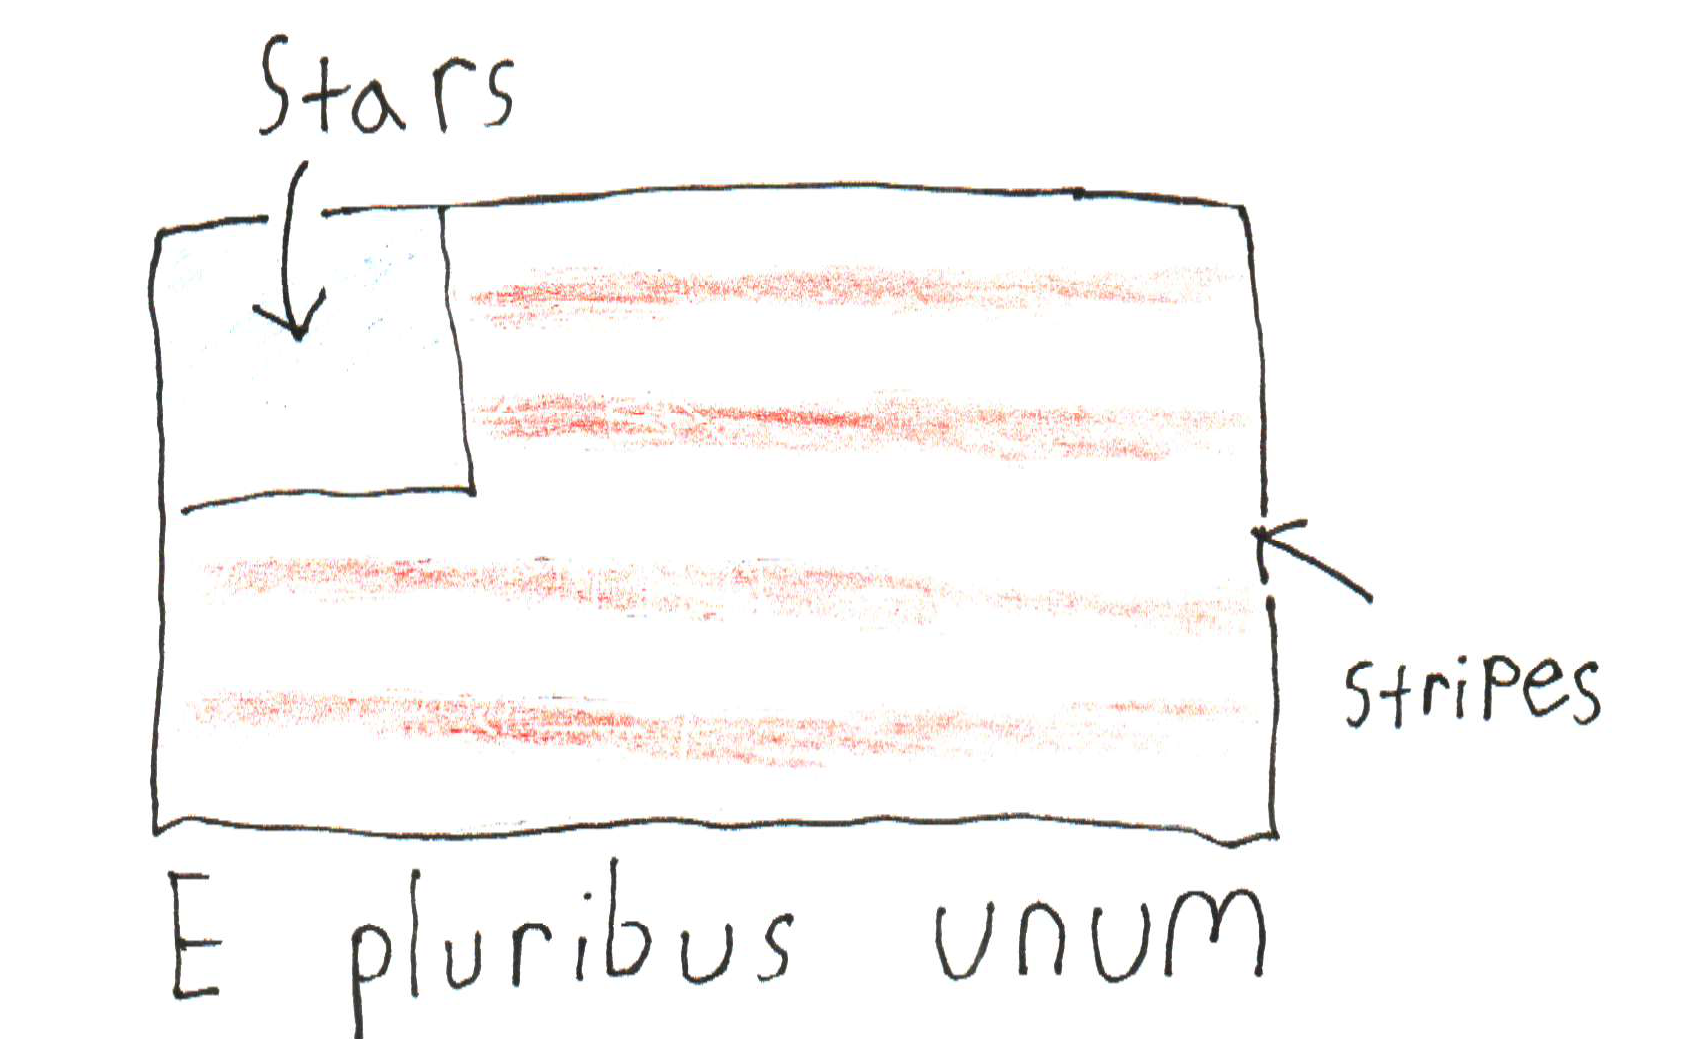 Stars
stripes
E pluribus unum